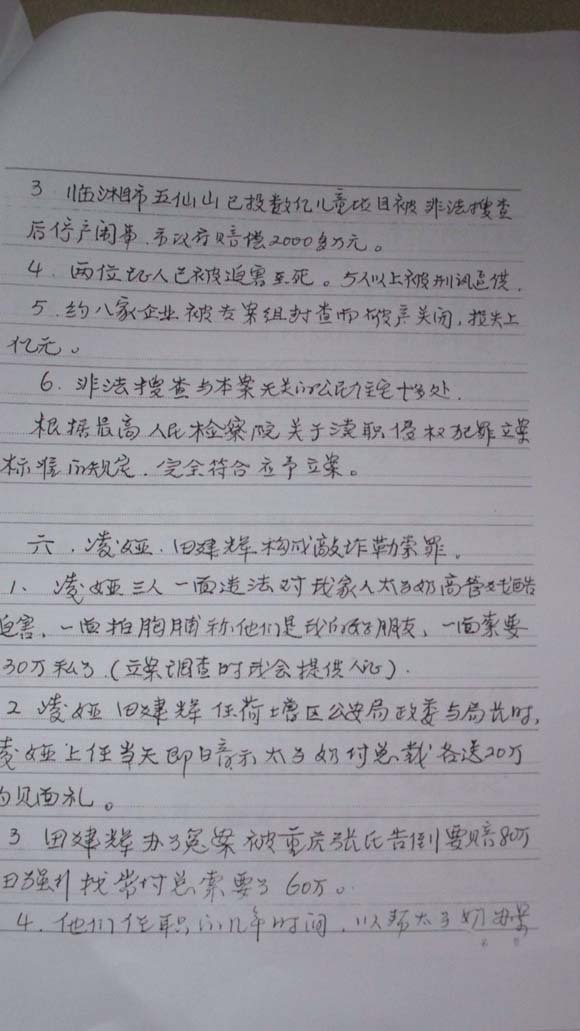 3 临湘市五仙山已投数亿儿童项目被非法搜查
后停产闹事,市政府赔偿2000多万元。
4. 两位证人已被迫害至死。5人以上被刑讯逼供.
5. 约八家企业被专案组封查而破产关闭,损失上
亿元。
6. 非法搜查与本案无关的公民住宅十多处.
根据最高人民检察院关于渎职侵权犯罪立案
标准的规定,完全符合应予立案。
六,凌娅.田建辉构成敲诈勒索罪。
1、凌娅三人一面违法对我家人太子奶高管残酷
迫害,一面拍胸脯称他们是我的好朋友,一面索要
30万私了.(立案调查时我会提供人证).
2 凌娅 田建辉任荷塘区公安局政委与局长时,
凌娅上任当天即暗示太子奶付总裁各送20万
的见面礼。
3 田建辉办了冤案被重庆张氏告倒要赔80万
田强行找常付总索要了60万。
4. 他们任职的几年时间,以帮太子奶办案